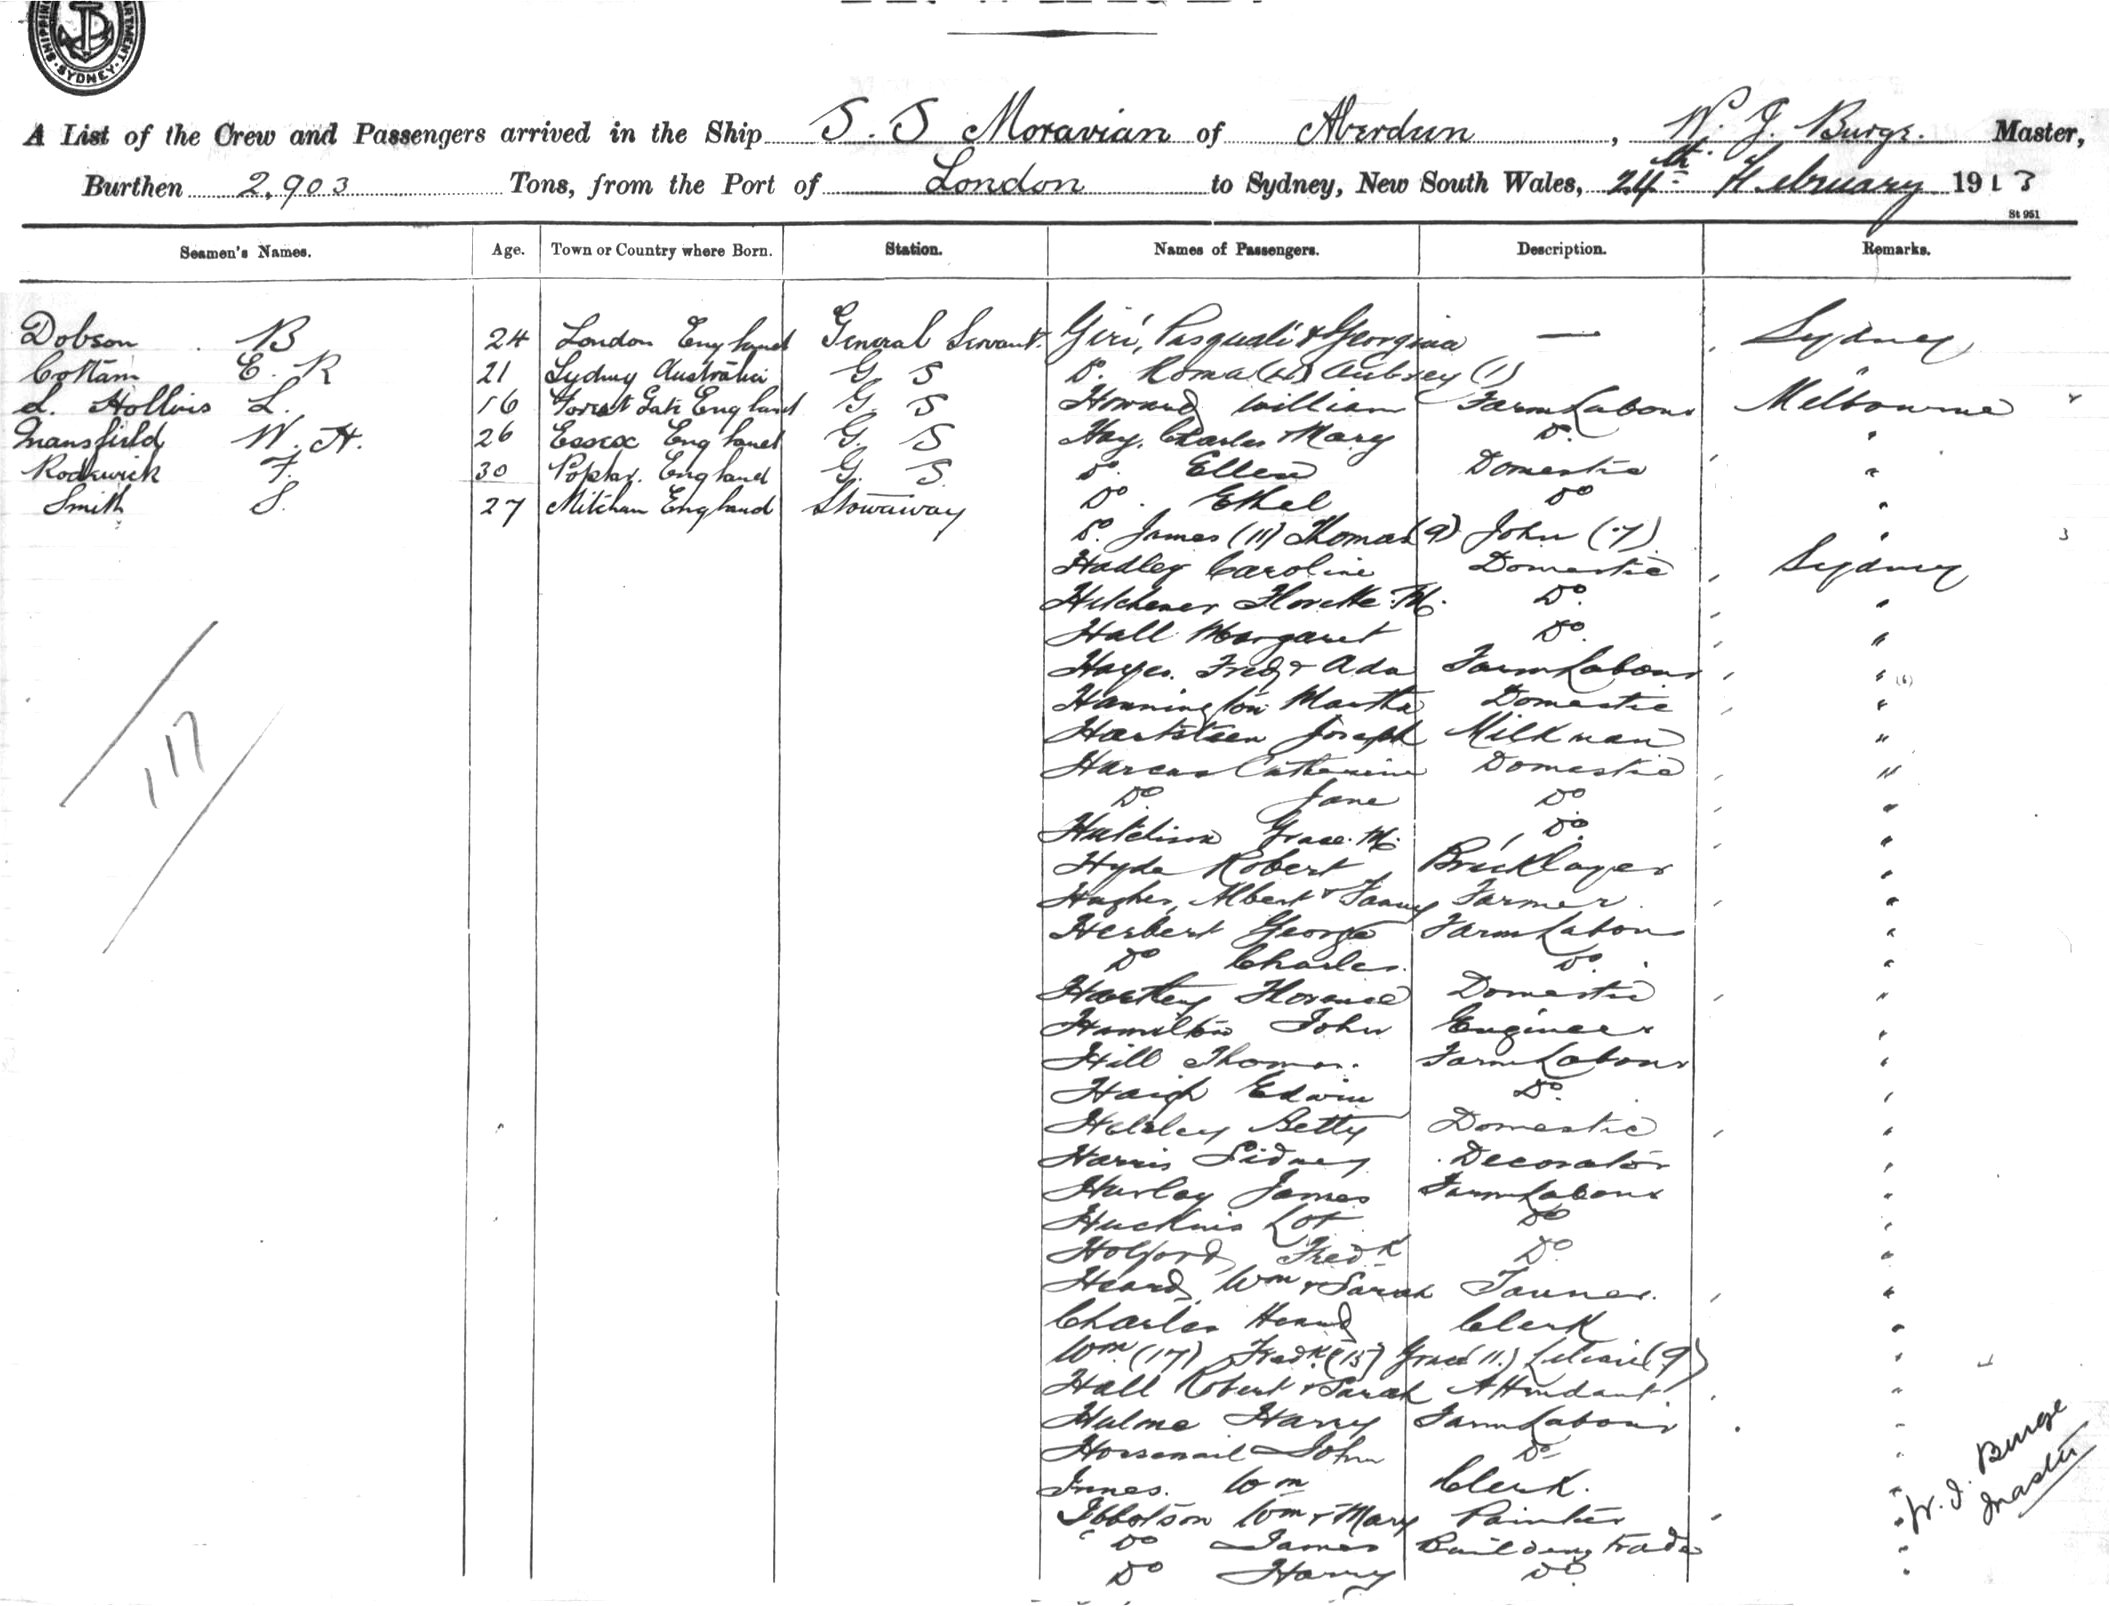 SHIPPING DEPARTMENT · SYDNEY ·
A List of the Crew and Passengers arrived in the Ship S. S Moravian of Aberdeen, W. J. Burge. Master,
Burthen 2,903 Tons, from the Port of London to Sydney, New South Wales, 24th February 1913
St 951
Seamen's Names. Age. Town or Country where Born. Station. Names of Passengers. Description. Remarks.
Dobson B 24 London England General Servant. Giri, Pasquali & Georgina — Sydney
Cottam E. R 21 Sydney Australia G S Do. Roma Aubrey (1) "
L. Hollins L. 16 Forest Gate England G S Howard William Farm Labour Melbourne
Mansfield W. H. 26 Essex England G. S Hay, Charles & Mary Do. "
Roderick F. 30 Poplar. England G. S. Do. Ellen Domestic "
Smith S. 27 Mitcham England Stowaway Do. Ethel Do "
Do. James (11) Thomas (9) John (7) " 3
Hadley Caroline Domestic Sydney
Hitchener Florette. M. Do. "
Hall Margaret Do. "
Hayes. Fred & Ada Farm Labour " (6)
Hannington Martha Domestic "
Joseph Milkman "
Harcas Catherine Domestic "
Do. Jane Do "
Hutchison Grace. M. Do. "
Hyde Robert Bricklayer "
Hughes, Albert & Fanny Farmer. "
Herbert George Farm Labour "
Do Charles. Do. "
Hartley Florence Domestic "
Hamilton John Engineer "
Hill Thomas. Farm Labour "
Haigh Edwin Do. "
Betty Domestic "
Harris Sidney Decorator "
Hurley James Farm Labour "
Huckins Lot Do "
Holford, Fredk Do "
Heard, Wm & Sarah "
Charles Heard Clerk "
Wm (17) Fredk (15) Grace (11.) (9) "
Hall Robert & Sarah Attendant "
Hulme Harry Farm Labour "
Horsenail John Do "
Innes. Wm Clerk. "
Ibbotson Wm & Mary Painter "
Do James Building Trade "
Do Harry Do. "
117
W. J. Burge
Master